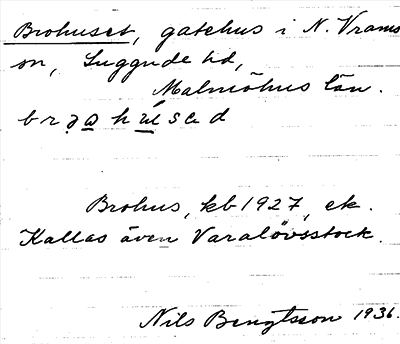 Brohuset, gatehus i N. Vrams
sn, Luggude hd,
Malmöhus län.
Brohus, kb 1927, ek.
Kallas även Varalövsstock.
Nils Bengtsson 1936.